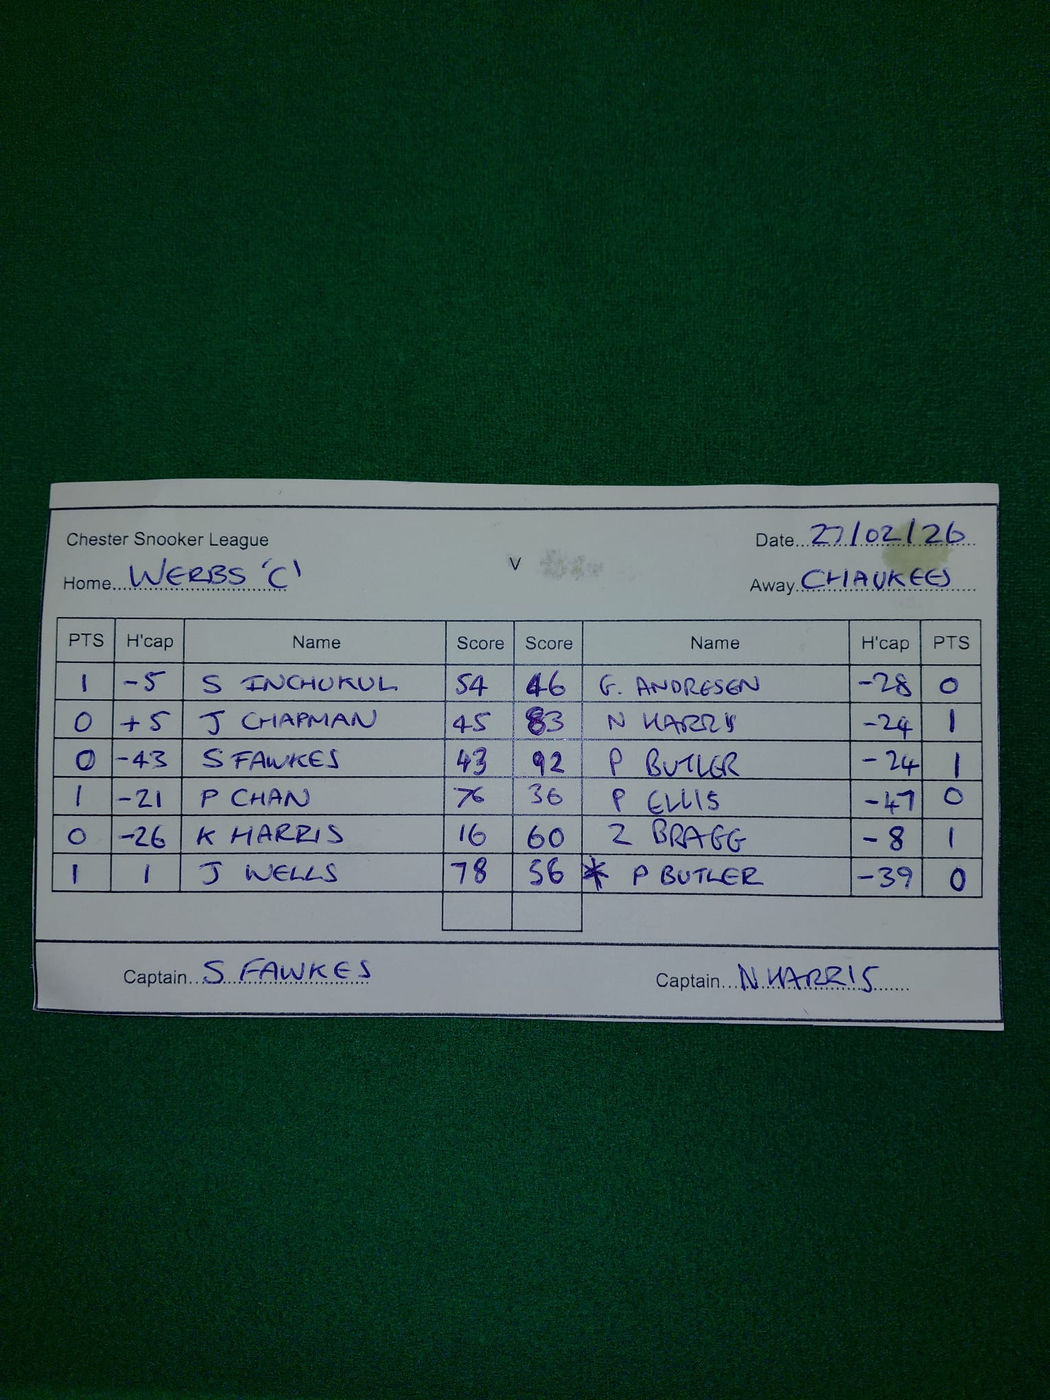 Chester Snooker League
Date...27/02/26
Home...WERBS 'C'
V
Away...CHAUKEES
PTS H'cap Name Score Score Name H'cap PTS
1 -5 S INCHUKUL 54 46 G. ANDRESEN -28 0
0 +5 J CHAPMAN 45 83 N HARRIS -24 1
0 -43 S FAWKES 43 92 P BUTLER -24 1
1 -21 P CHAN 76 36 P ELLIS -47 0
0 -26 K HARRIS 16 60 Z BRAGG -8 1
1 1 J WELLS 78 56 * P BUTLER -39 0
Captain...S FAWKES
Captain...N HARRIS